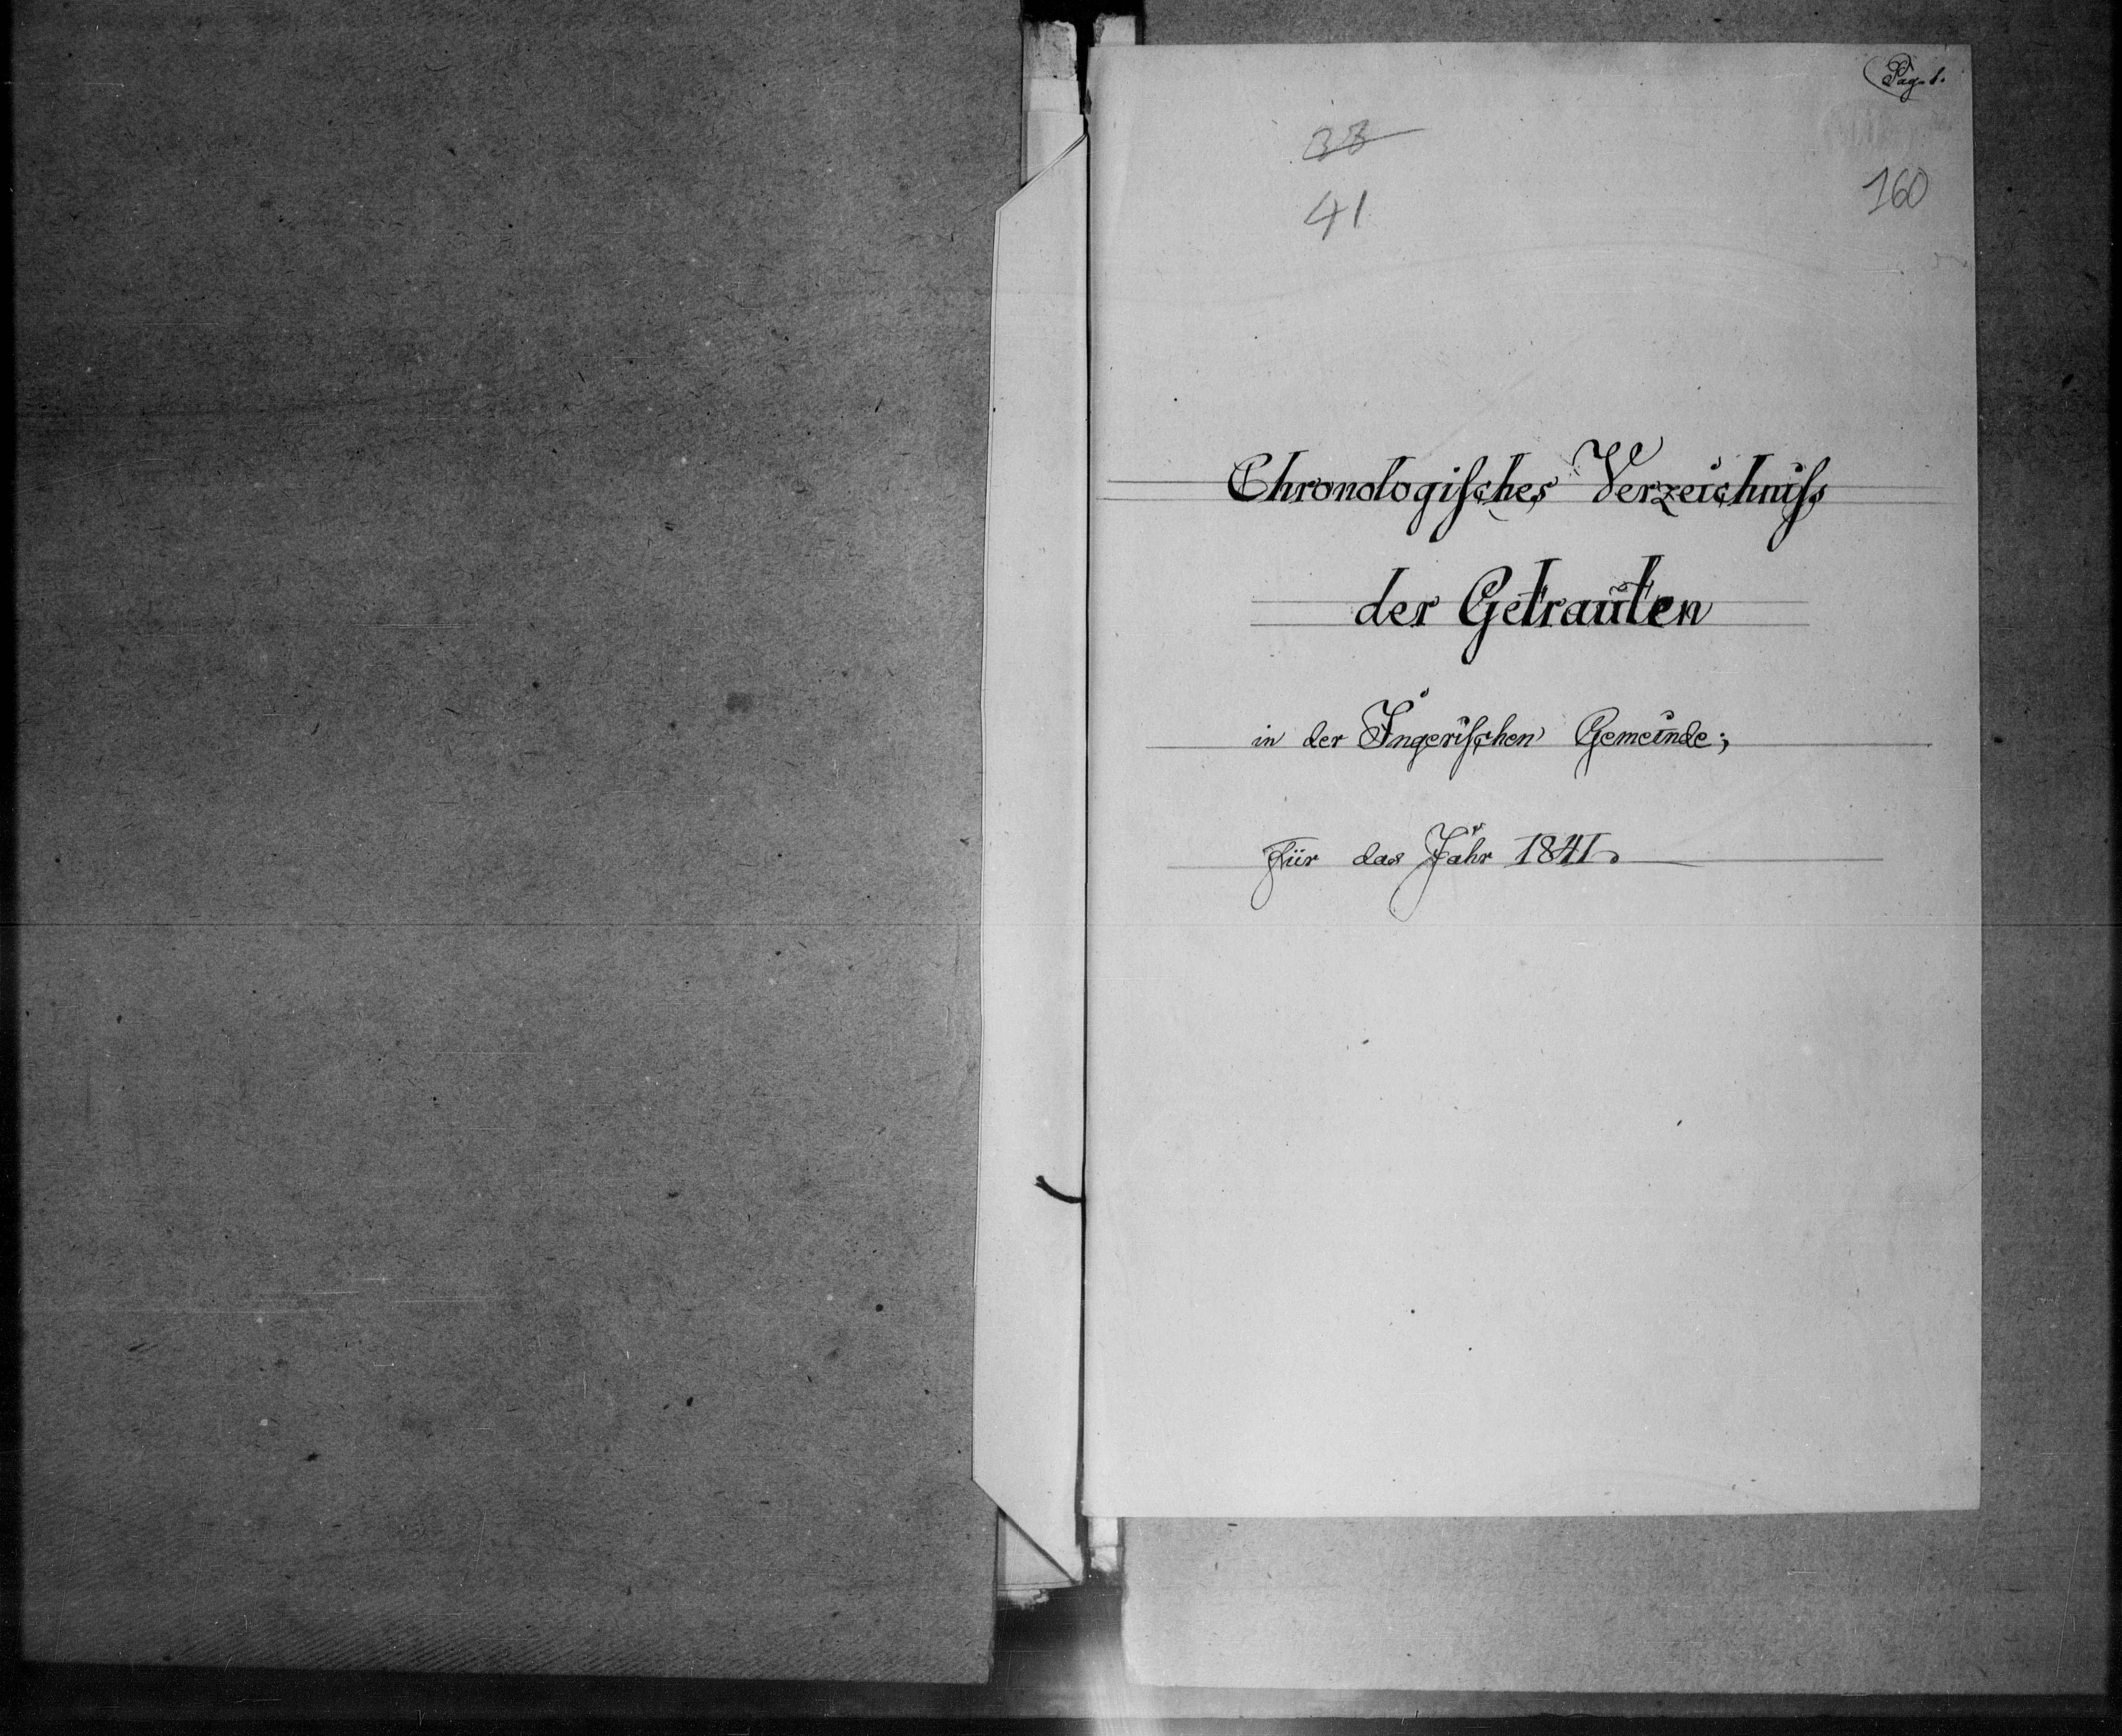 Pag. 1.
41
160
Chronologisches Verzeichniss
der Getrauten
in der Ingerischen Gemeinde;
Für das Jahr 1841.